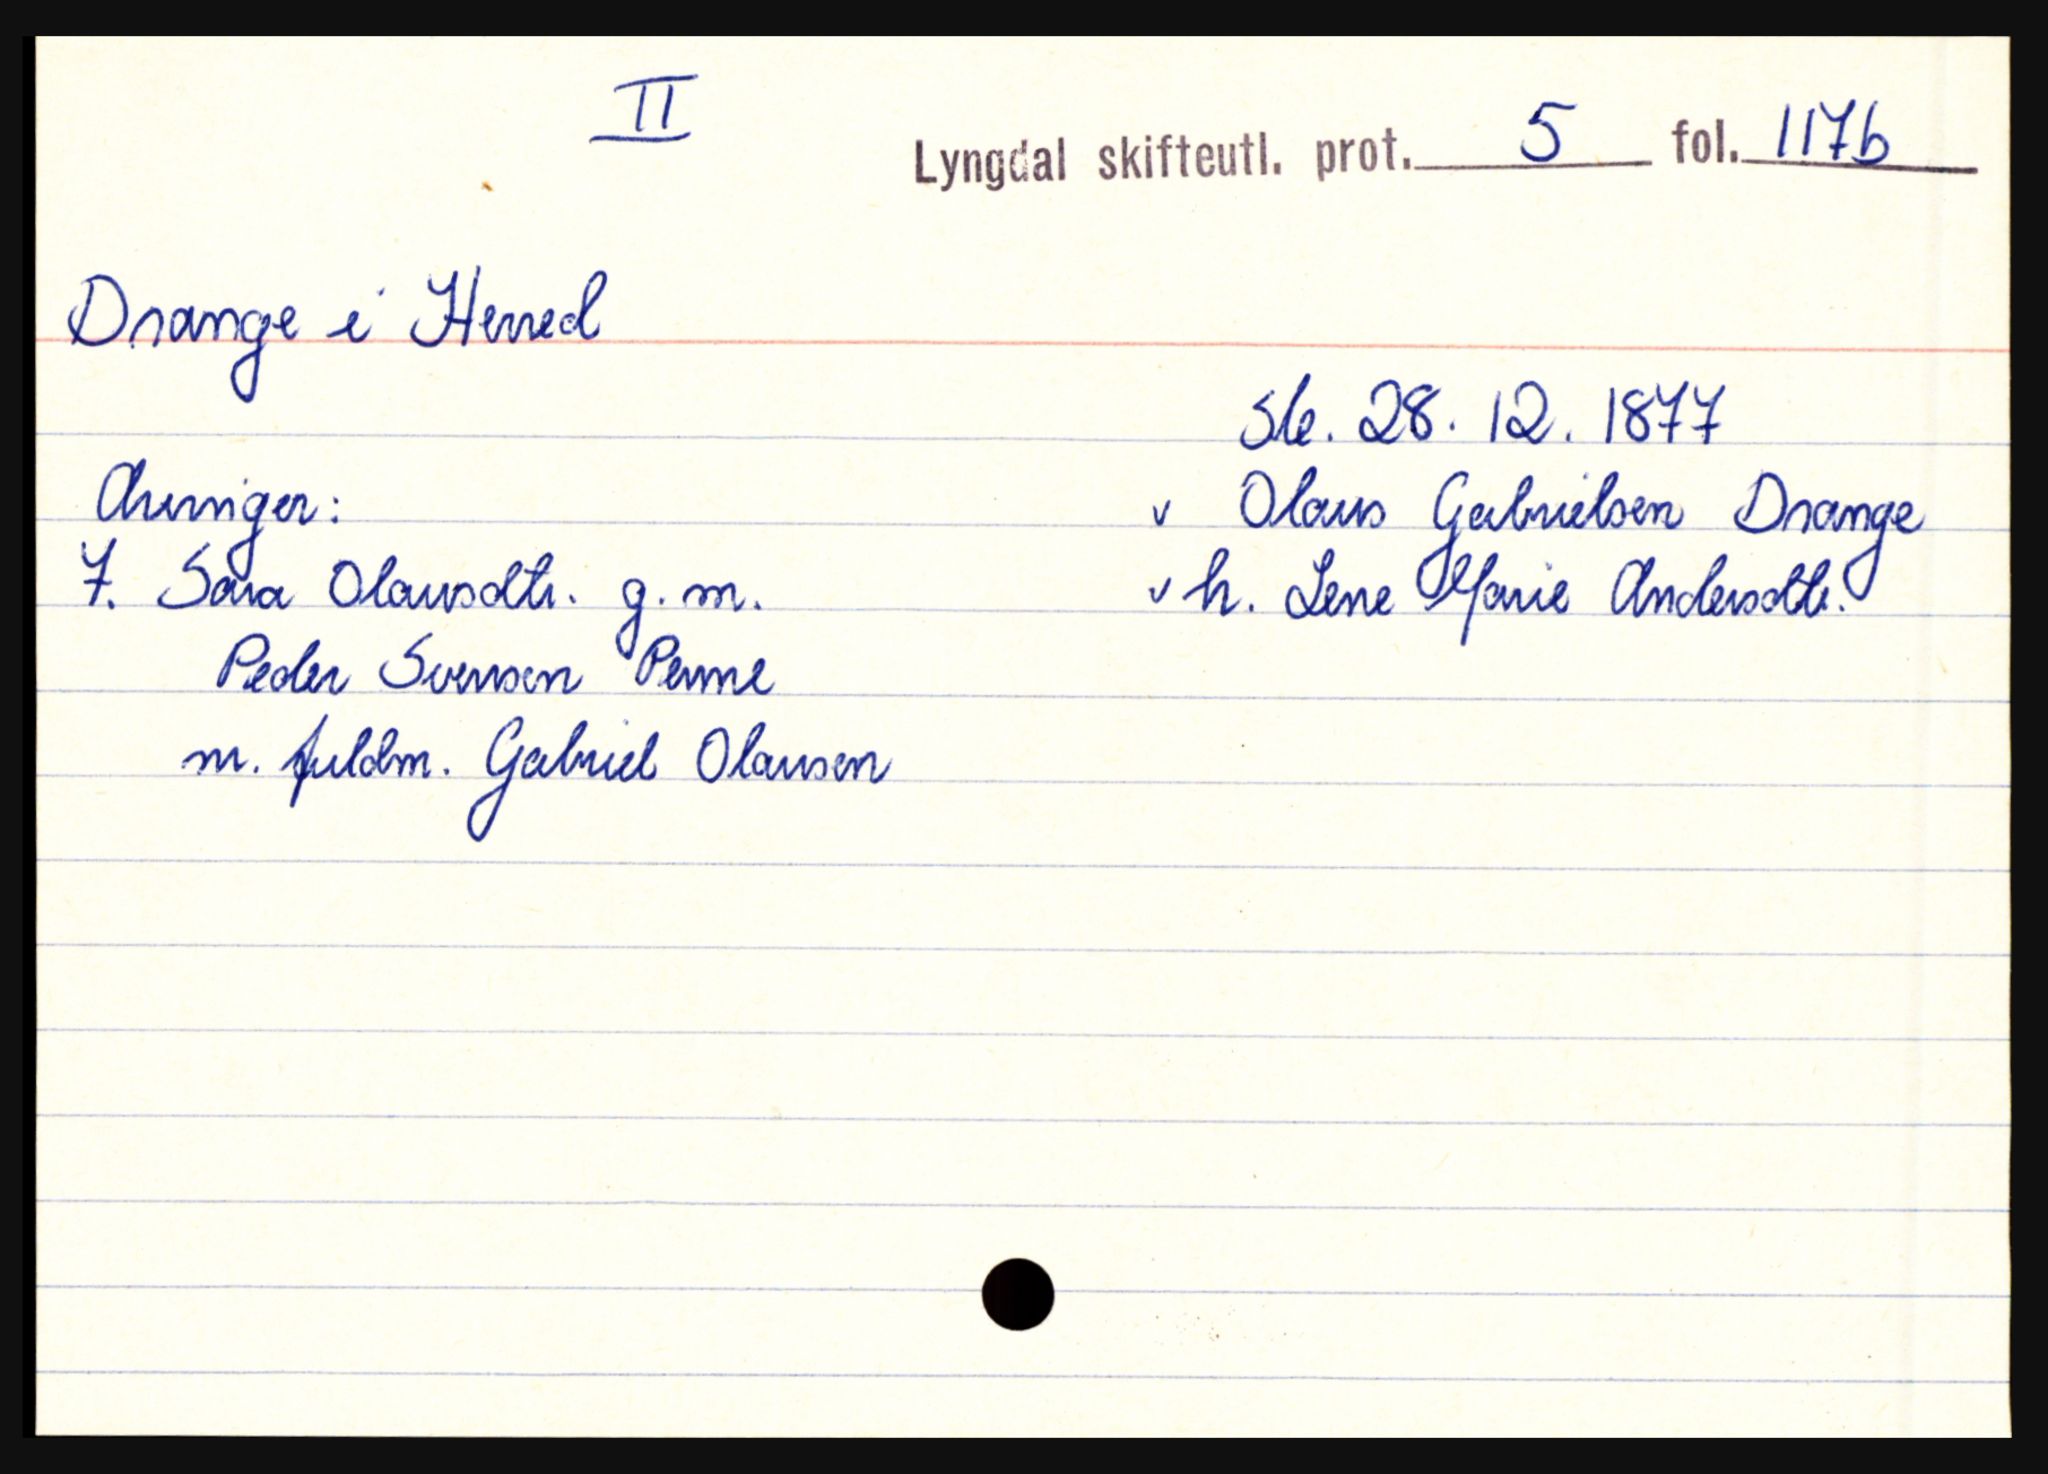 II
Lyngdal skifteutl. prot. 5 fol. 117b
Drange i Herred
Skr. 28. 12. 1877
Arvinger:
v Olaus Gabrielsen Drange
7. Sara Olausdtr. g. m.
v h. Lene Marie Andersdtr.
Peder Svensen Penne
m. fuldm. Gabriel Olausen